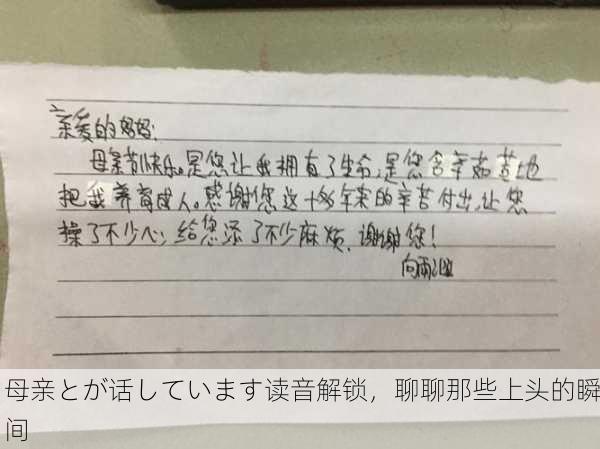 亲爱的妈妈：
母亲节快乐。是您让我拥有了生命，是您含辛茹苦地
把我养育成人。感谢您这十多年来的辛苦付出，让您
操了不少心，给您添了不少麻烦，谢谢您！
向雨
母亲とが话しています读音解锁，聊聊那些上头的瞬
间